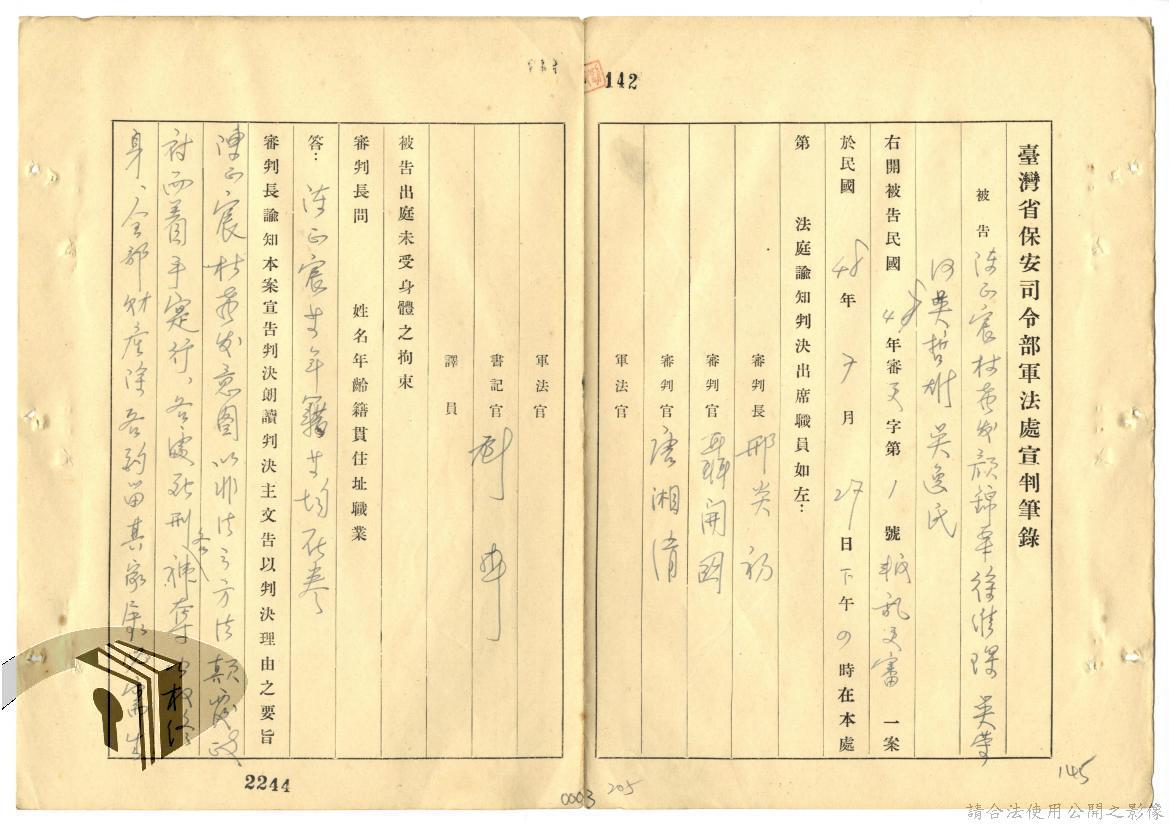 142
臺灣省保安司令部軍法處宣判筆錄
被告 陳正宸林 顏錦華徐淮琛
吳哲雄 吳逸民
右開被告民國 年審 字第 1 號 叛亂 審 一案
於民國 48 年 7 月 27 日下午 時在本處
第 法庭諭知判決出席職員如左：
審判長 邢炎初
審判官 聶開國
審判官 唐湘清
軍法官
軍法官
書記官
譯員
被告出庭未受身體之拘束
審判長問 姓名年齡籍貫住址職業
答： 陳正宸等年籍等均在卷
審判長諭知本案宣告判決朗讀判決主文告以判決理由之要旨
陳正宸林 意圖以非法之方法顛覆政
府而着手實行、各處死刑 各 褫奪公權終
身、全部財產除各酌留其家屬必需生
2244
0003
205
145
請合法使用公開之影像